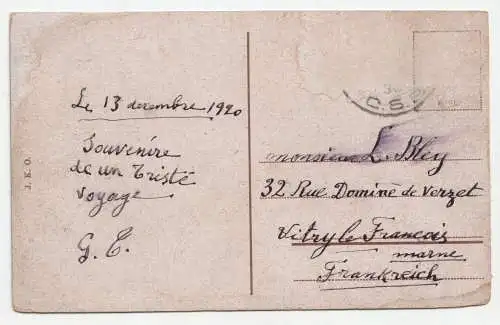 Le 13 decembre 1920
Souvenire
de un Tristé
voyage
G. E.
J. K. O.
C. S.
monsieur L. Bley
32 Rue Dominé de Verzet
Vitry le Francois
marne
Frankreich